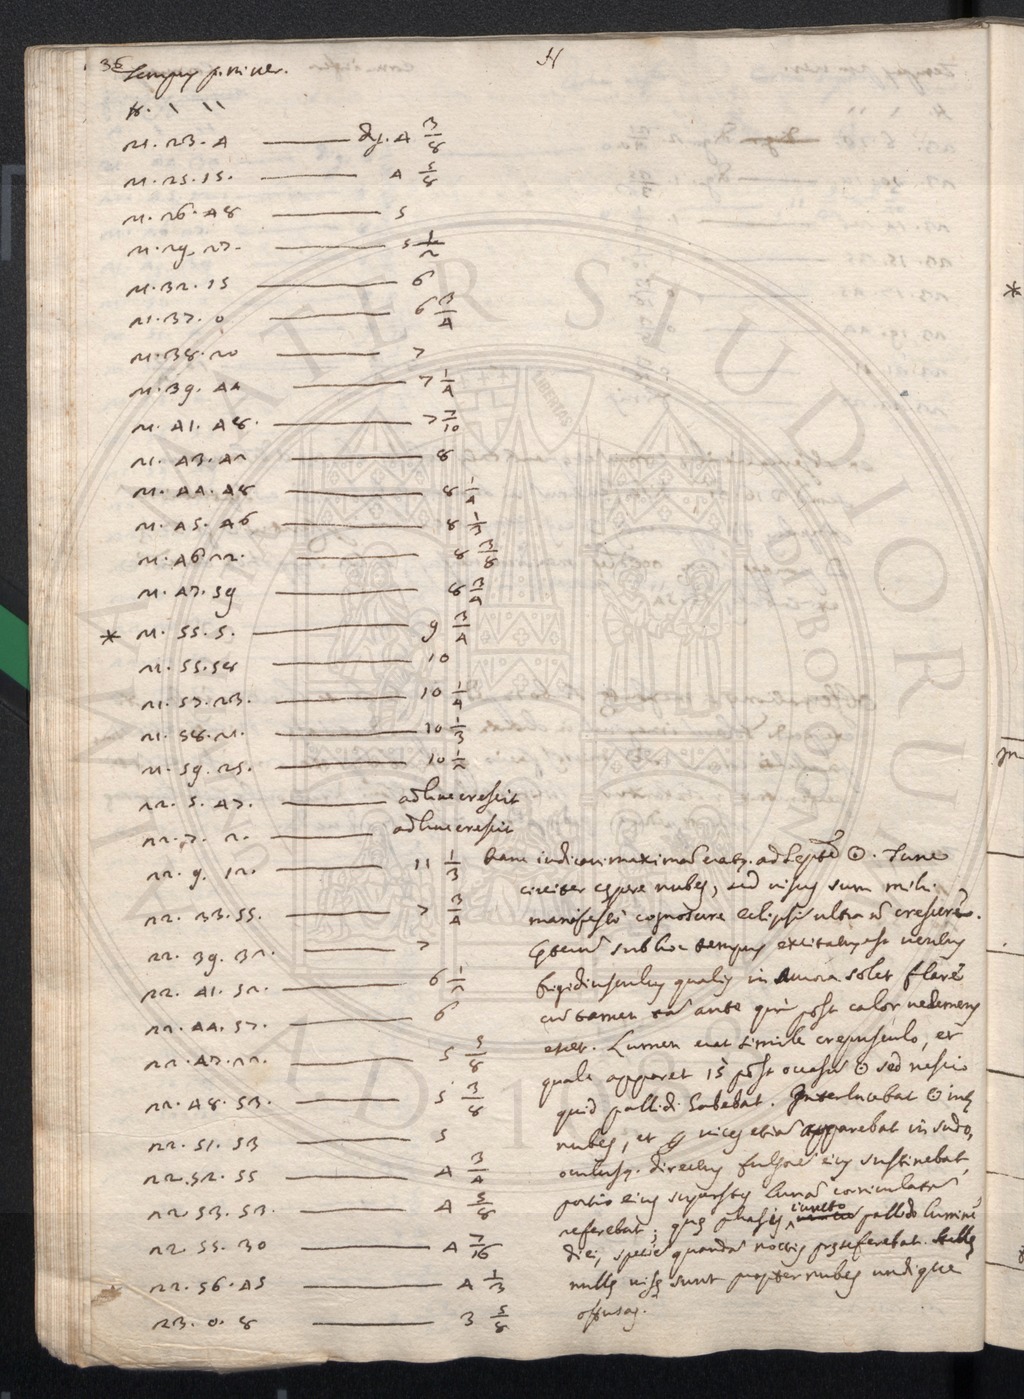 36
H
Tempus p. m. ver.
H. \ \\
21. 23. 4 dig. 4 3/8
21. 25. 15. 4 5/8
21. 26. 48 5
21. 29. 27. 5 1/2
21. 32. 15 6
21. 37. 0 6 3/4
21. 38. 20 7
21. 39. 44 7 1/4
21. 41. 48. 7 7/10
21. 43. 42 8
21. 44. 48 8 1/4
21. 45. 46 8 1/3
21. 46. 22. 8 3/8
21. 47. 59 8 3/4
* 21. 55. 5. 9 3/4
21. 55. 58 10
21. 57. 23. 10 1/4
21. 58. 21. 10 1/3
21. 59. 25. 10 1/2
22. 5. 47. adhuc crescit
22. 7. 2. adhuc crescit
22. 9. 12. 11 1/3
22. 33. 55. 7 3/4
22. 39. 32. 7
22. 41. 52. 6 1/2
22. 44. 57. 6
22. 47. 22. 5 5/8
22. 48. 53. 5 3/8
22. 51. 53 5
22. 52. 55 4 3/4
22. 53. 52. 4 5/8
22. 55. 30 4 7/16
22. 56. 45 4 1/3
23. 0. 8 3 5/8
hanc iudicavi maximā ad ☉. Tunc
circiter cępere nubes, sed visus sum mihi
manifestè cognoscere eclipsim ultra nō crescere.
sub hoc tempus excitatus est ventus
frigidiusculus qualis in Aurora solet flare
cū tamen tā ante quā post calor vehemens
esset. Lumen erat simile crepusculo, et
quale apparet 15' post occasū ☉ sed nescio
quid pallidi habebat. Interlucebat ☉ int̃
nubes, et vices etiā apparebat in sudo,
oculusq. directus fulgorē eius sustinebat,
portio eius superstes lunā corniculatā
referebat; quę phasis iuncto pallido lumine
diei, speciē quandā noctis pręseferebat. Stellę
nullę visę sunt propter nubes undique
offusas.
ALMA MATER STUDIORUM
A.D. 1088
DI BOLOGNA
LIBERTAS